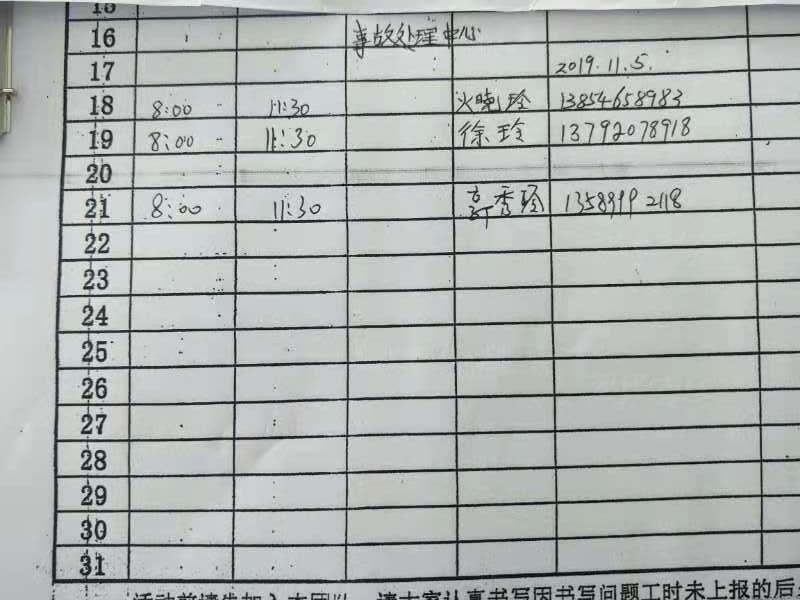 15
16 事故处理中心
17 2019.11.5.
18 8:00 11:30 火晓玲 13854658983
19 8:00 11:30 徐玲 13792078918
20
21 8:00 11:30 秀玲 1358999 2118
22
23
24
25
26
27
28
29
30
31
活动前请先加入本团队 请大家认真书写因书写问题工时未上报的后